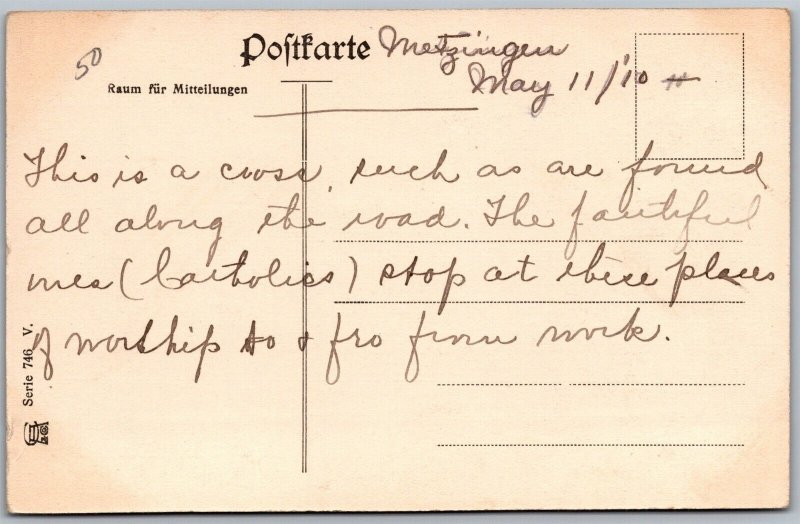 50
Postkarte Metzingen
May 11/'10
Raum für Mitteilungen
This is a cross, such as are found
all along the road. The faithful
ones (Catholics) stop at these places
of worship to & fro from work.
Serie 746 V.